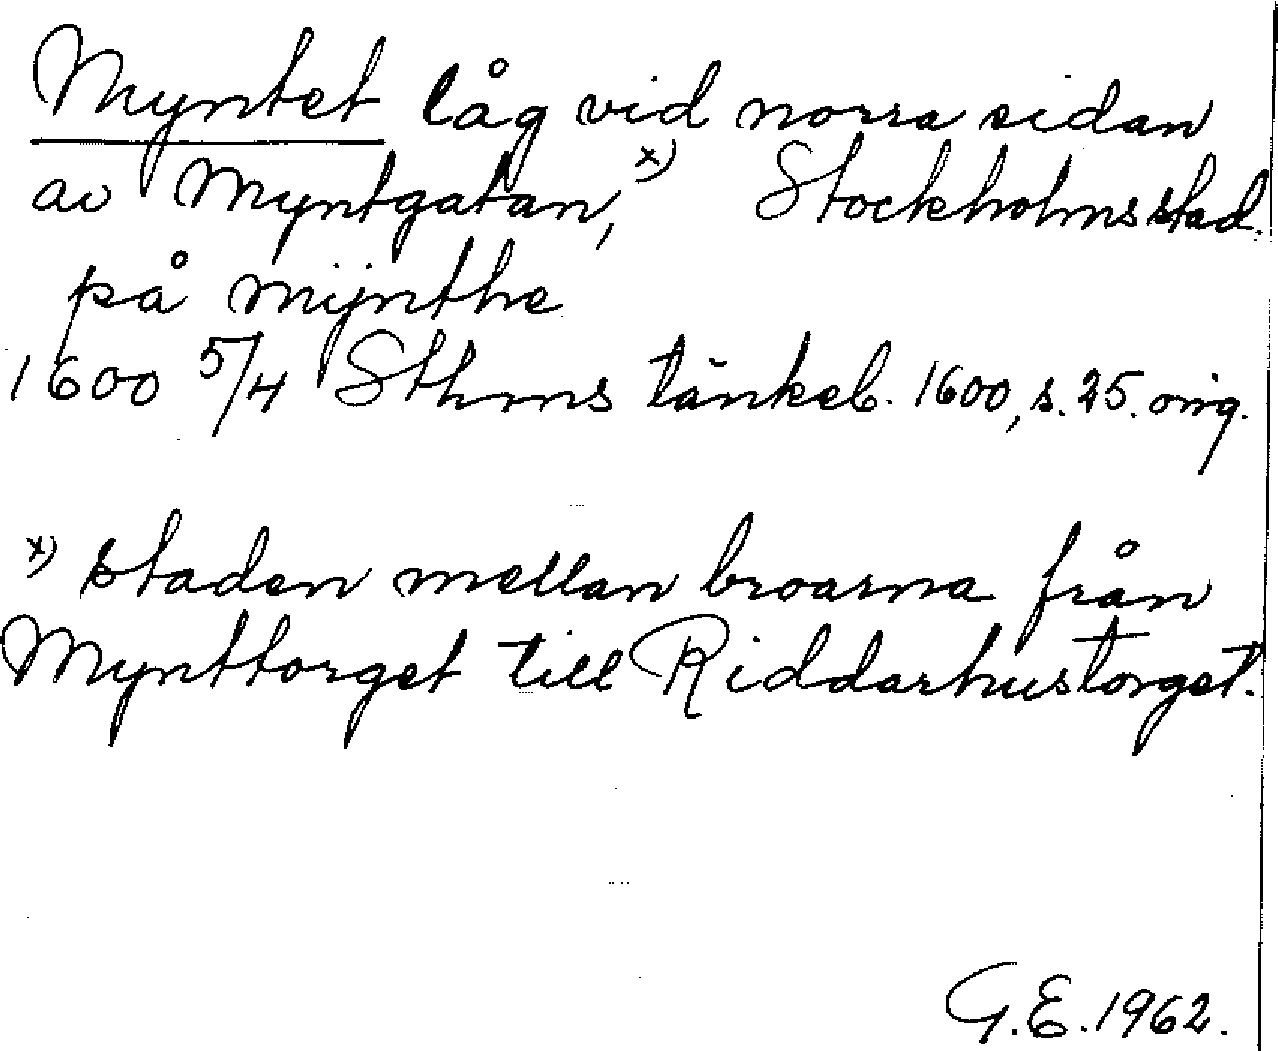 Myntet låg vid norra sidan
av Myntgatan, x) Stockholms stad.
på mÿnthe
1600 5/4 Sthms tänkeb. 1600, s. 25. orig.
x) staden mellan broarna från
Mynttorget till Riddarhustorget.
G.E. 1962.